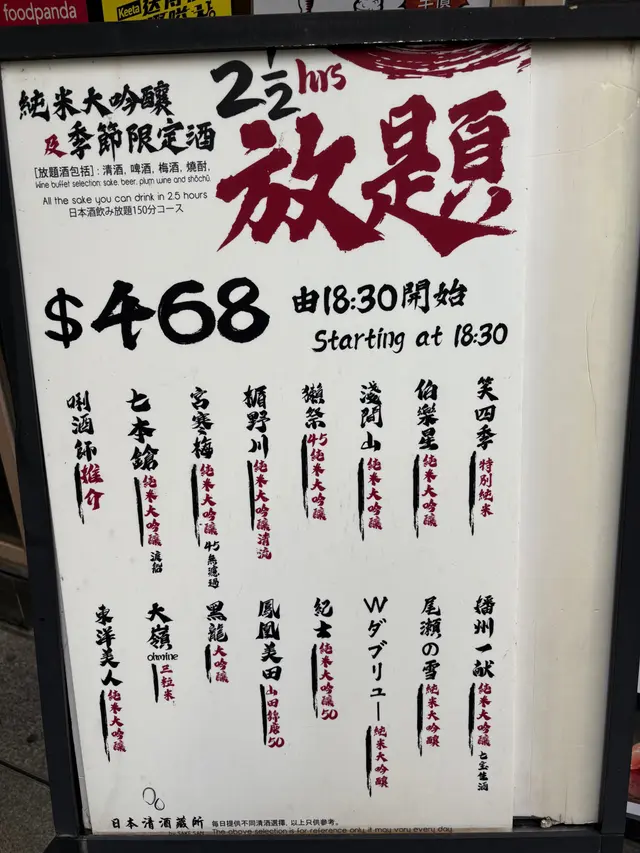 foodpanda
Keeta
純米大吟釀
及季節限定酒
2½hrs
放題
[放題酒包括]:清酒, 啤酒, 梅酒, 燒酎,
Wine buffet selection: sake, beer, plum wine and shōchū.
All the sake you can drink in 2.5 hours
日本酒飲み放題150分コース
$468
由18:30開始
Starting at 18:30
笑四季 特別純米
伯樂星 純米大吟釀
淺間山 純米大吟釀
獺祭 45純米大吟釀
楯野川 純米大吟釀清流
宮寒梅 純米大吟釀 45 無濾過
七本鎗 純米大吟釀
唎酒師推介
播州一献 純米大吟釀 七宝生酒
尾瀬の雪 純米大吟釀
Wダブリュー 純米大吟釀
紀士 純米大吟釀50
鳳凰美田 山田錦 50
黑龍 大吟釀
大嶺 ohmine 三粒米
東洋美人 純米大吟釀
日本清酒蔵所
每日提供不同清酒選擇, 以上只供參考。
The above selection is for reference only, it may vary every day